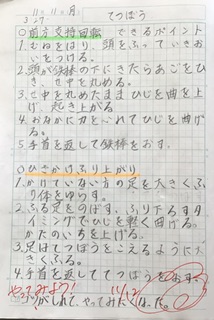 11/11(月) てつぼう
3-27
○前方支持回転 できるポイント
1.むねをはり、頭をふっていきお
いをつける。
2.頭が鉄棒の下にきたらあごをひ
き、せ中を丸める。
3.せ中を丸めたままひじを曲げ
て、起き上がる
4.おなかに力を心れてひじを曲げ
る。
5.手首を返して鉄棒をおす。
○ひざかけふり上がり
1.かけていない方の足を大きくふ
り体をゆらす。
2.ふる足をのばす。ふり下ろすタ
イミングでひじを軽く曲げる。
かたのいちを上げる。
3.足はてつぼうをこえるように大
きくふる。
4.手首を返しててつぼうをおす。
やってみよう!
11/12
コツがしれて、やってみたくなった。